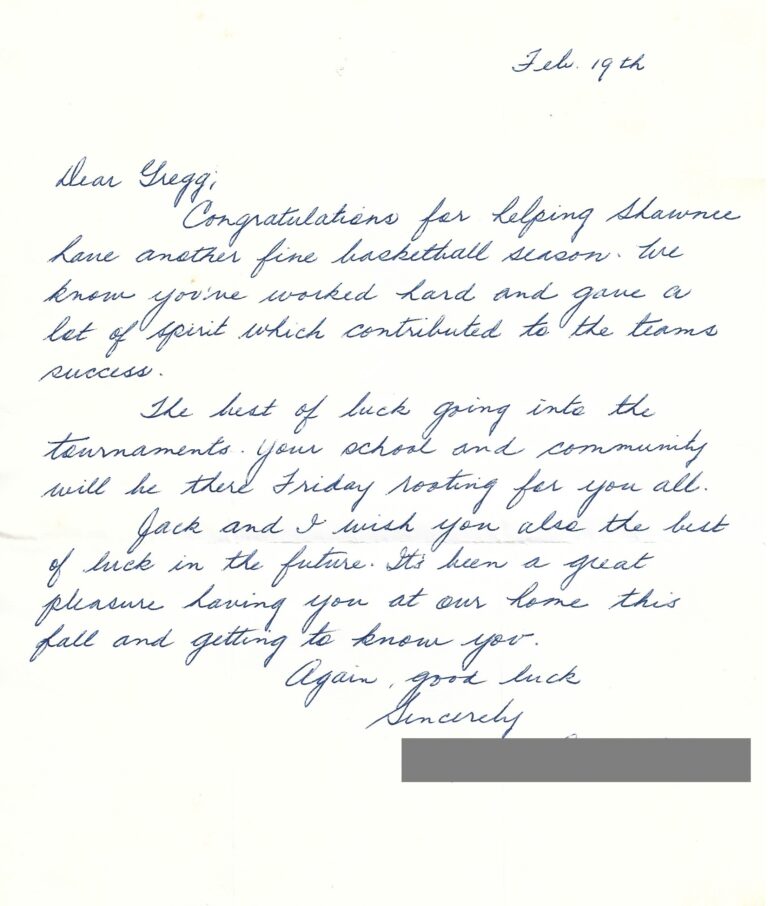 Feb. 19th
Dear Gregg,
Congratulations for helping Shawnee
have another fine basketball season. We
know you've worked hard and gave a
lot of spirit which contributed to the teams
success.
The best of luck going into the
tournaments. Your school and community
will be there Friday rooting for you all.
Jack and I wish you also the best
of luck in the future. It's been a great
pleasure having you at our home this
fall and getting to know you.
Again, good luck
Sincerely